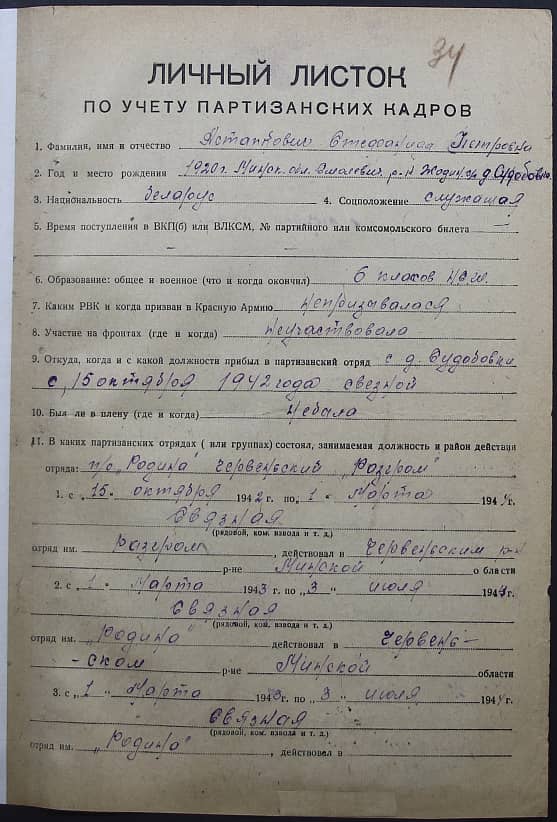 34
ЛИЧНЫЙ ЛИСТОК
ПО УЧЕТУ ПАРТИЗАНСКИХ КАДРОВ
1. Фамилия, имя и отчество Астапкович Степонида Петровна
2. Год и место рождения 1920 г. Минск. обл. Смолевич. р-н Жодин д. Судобовка
3. Национальность беларус 4. Соцположение служащая
5. Время поступления в ВКП(б) или ВЛКСМ, № партийного или комсомольского билета —
6. Образование: общее и военное (что и когда окончил) 6 класов
7. Каким РВК и когда призван в Красную Армию непризывалася
8. Участие на фронтах (где и когда) неучаствовала
9. Откуда, когда и с какой должности прибыл в партизанский отряд с д. Судобовки
с, 15 октября 1942 года связной
10. Был ли в плену (где и когда) небала
11. В каких партизанских отрядах (или группах) состоял, занимаемая должность и район действия
отряда: п/о „Родина" Червеньский „Разгром"
1. с „15" октября 1942 г. по „1" марта 194 г.
связная
(рядовой, ком. взвода и т. д.)
отряд им. Разгром, действовал в Червеньским р-н
р-не Минской области
2. с „1" марта 1943 г. по „3" июля 1944 г.
связная
(рядовой, ком. взвода и т. д.)
отряд им. „Родина" действовал в Червень-
-ском р-не Минской области
3. с „1" марта 1943 г. по „3" июля 1944 г.
связная
(рядовой, ком. взвода и т. д.)
отряд им. „Родина", действовал в